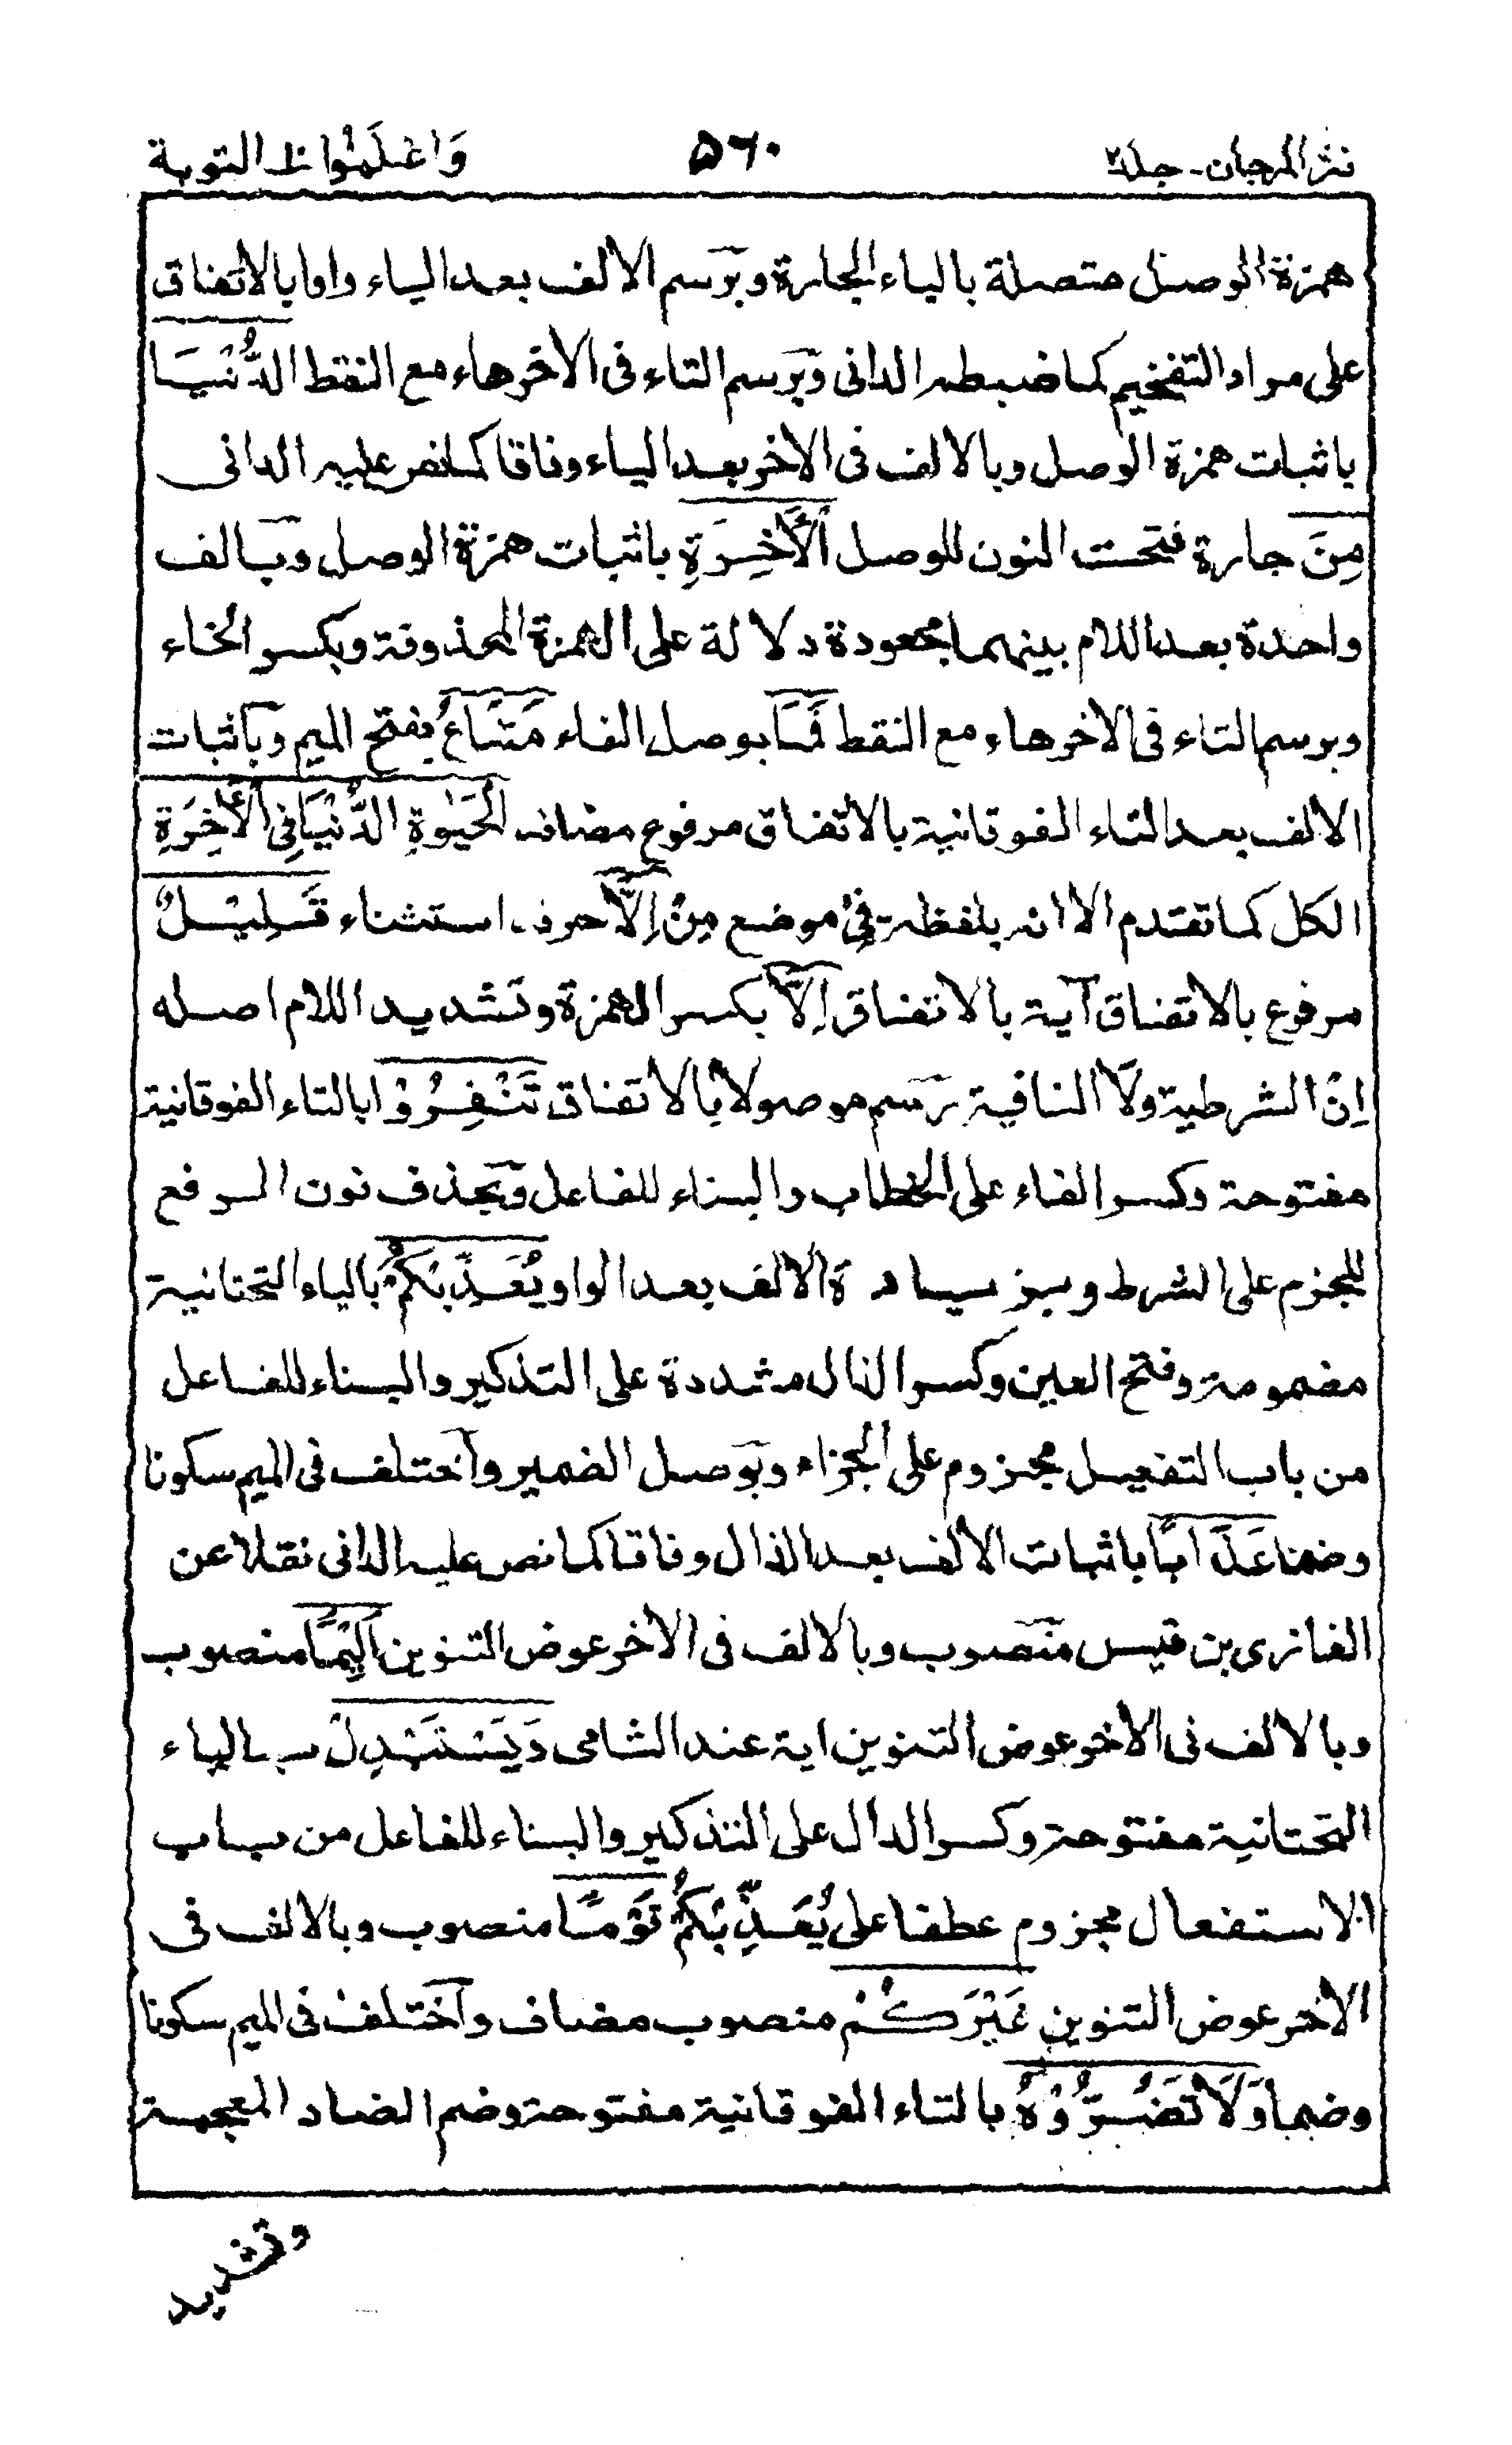 نثر المرجان ـ جلد٢ ۵٦٠ وَاعْلَمُوْا ١٠ التوبة
همزة الوصل متصلة بالباء الجارة وبرسم الالف بعد الياء واوا بالاتفاق
على مراد التفخيم كما ضبطه الدانى وبرسم التاء فى الاخر هاء مع النقط الدُّنْيَا
باثبات همزة الوصل وبالالف فى الاخر بعد الياء وفاقا كما نص عليه الدانى
مِنَ جارة فتحت النون للوصل الْأٰخِرَةِ باثبات همزة الوصل وبالف
واحدة بعد اللام بينهما مجعودة دلالة على الهمزة المحذوفة وبكسر الخاء
وبرسم التاء فى الاخر هاء مع النقط فَمَا بوصل الفاء مَتَاعُ بفتح الميم وباثبات
الالف بعد التاء الفوقانية بالاتفاق مرفوع مضاف الْحَيٰوةِ الدُّنْيَا فِى الْأٰخِرَةِ
الكل كما تقدم الا انه بلفظة فِىْ موضع مِنْ اِلَّا حرف استثناء قَلِيْلٌ
مرفوع بالاتفاق آية بالاتفاق اِلَّا بكسر الهمزة وتشديد اللام اصله
اِنْ الشرطية ولَا النافية رسم موصولا بالاتفاق تَنْفِرُوْا بالتاء الفوقانية
مفتوحة وكسر الفاء على الخطاب والبناء للفاعل وبحذف نون الرفع
للجزم على الشرط وبزيادة الالف بعد الواو يُعَذِّبْكُمْ بالياء التحتانية
مضمومة وفتح العين وكسر الذال مشددة على التذكير والبناء للفاعل
من باب التفعيل مجزوم على الجزاء وبوصل الضمير واختلف فى الميم سكونا
وضما عَذَابًا باثبات الالف بعد الذال وفاقا كما نص عليه الدانى نقلا عن
الغازى بن قيس منصوب وبالالف فى الاخر عوض التنوين اَلِيْمًا منصوب
وبالالف فى الاخر عوض التنوين اية عند الشامى وَيَسْتَبْدِلْ بالياء
التحتانية مفتوحة وكسر الدال على التذكير والبناء للفاعل من باب
الاستفعال مجزوم عطفا على يُعَذِّبْكُمْ قَوْمًا منصوب وبالالف فى
الاخر عوض التنوين غَيْرَكُمْ منصوب مضاف واختلف فى الميم سكونا
وضما وَلَا تَضُرُّوْهُ بالتاء الفوقانية مفتوحة وضم الضاد المعجمة
وتشديد